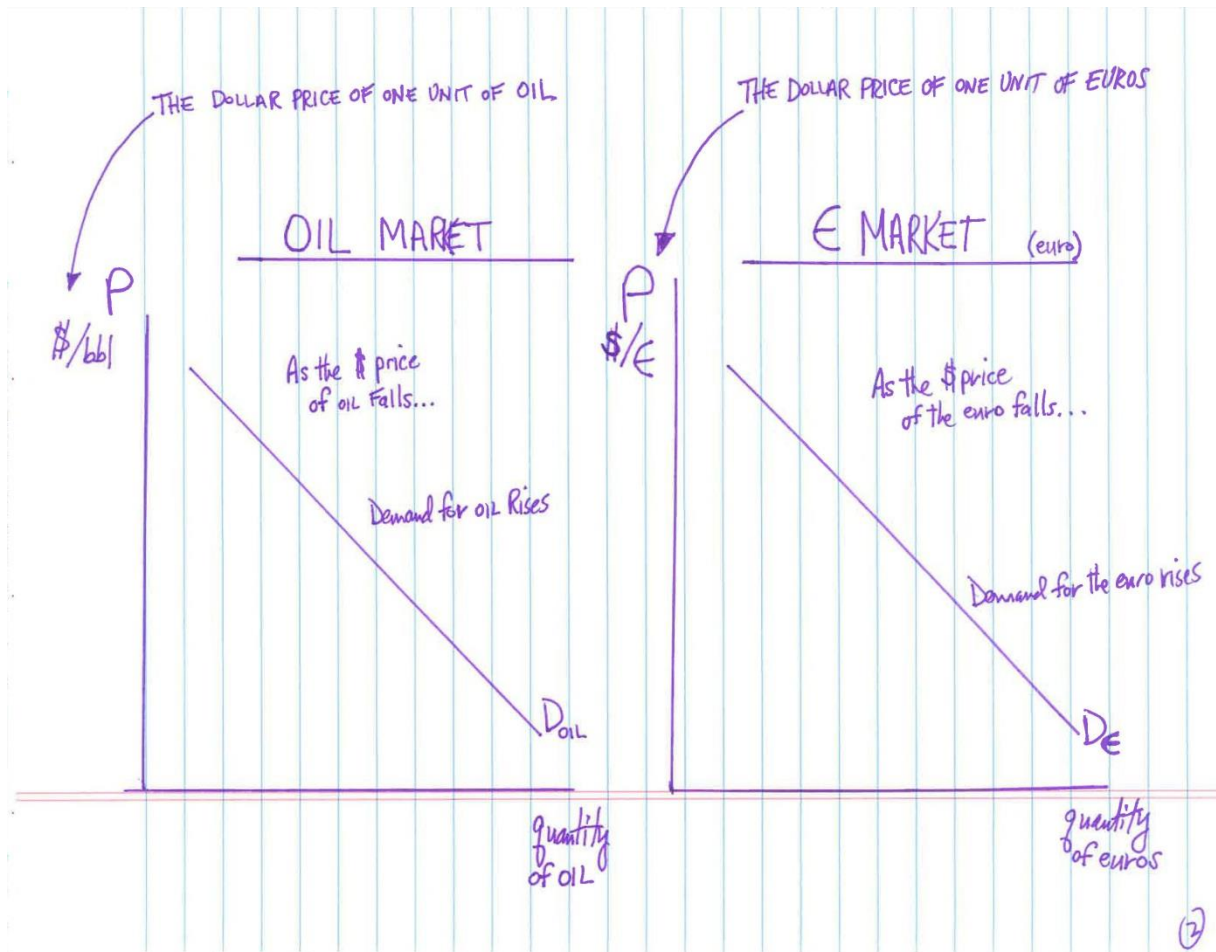 THE DOLLAR PRICE OF ONE UNIT OF OIL
OIL MARKET
P
$/bbl
As the $ price
of OIL Falls...
Demand for OIL Rises
D OIL
quantity
of OIL
THE DOLLAR PRICE OF ONE UNIT OF EUROS
€ MARKET (euro)
P
$/€
As the $ price
of the euro falls...
Demand for the euro rises
D€
quantity
of euros
2